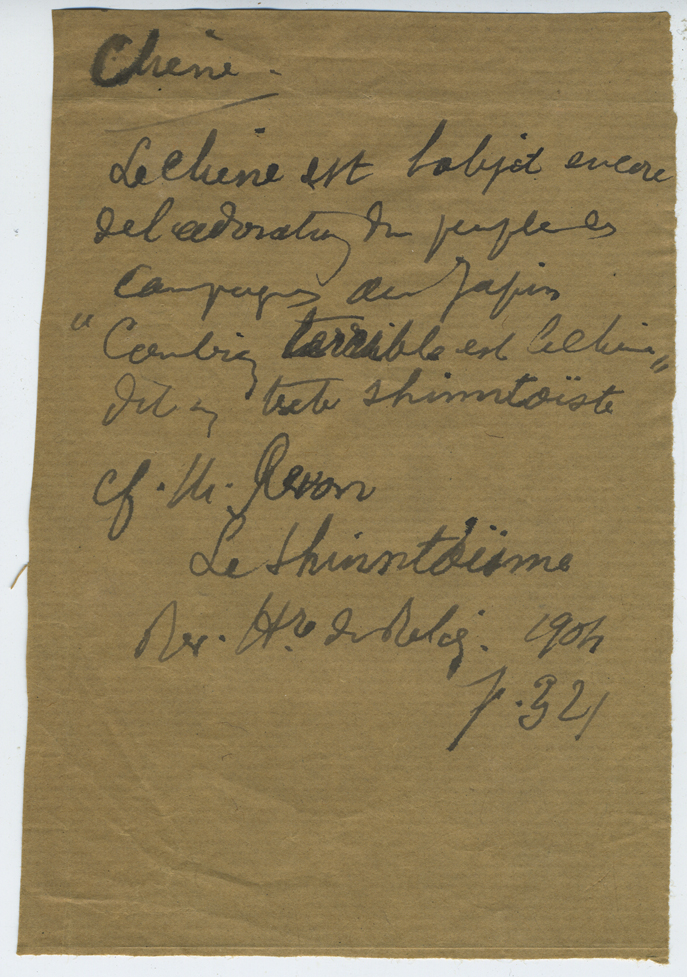 Chêne.
Le chêne est l'objet encore
de l'adoration du peuple des
campagnes au Japon
"Combien terrible est le chêne"
dit un texte shinntoïste
cf. M. Revon
Le Shinntoïsme
Rev. Hre des Relig. 1904
p. 321